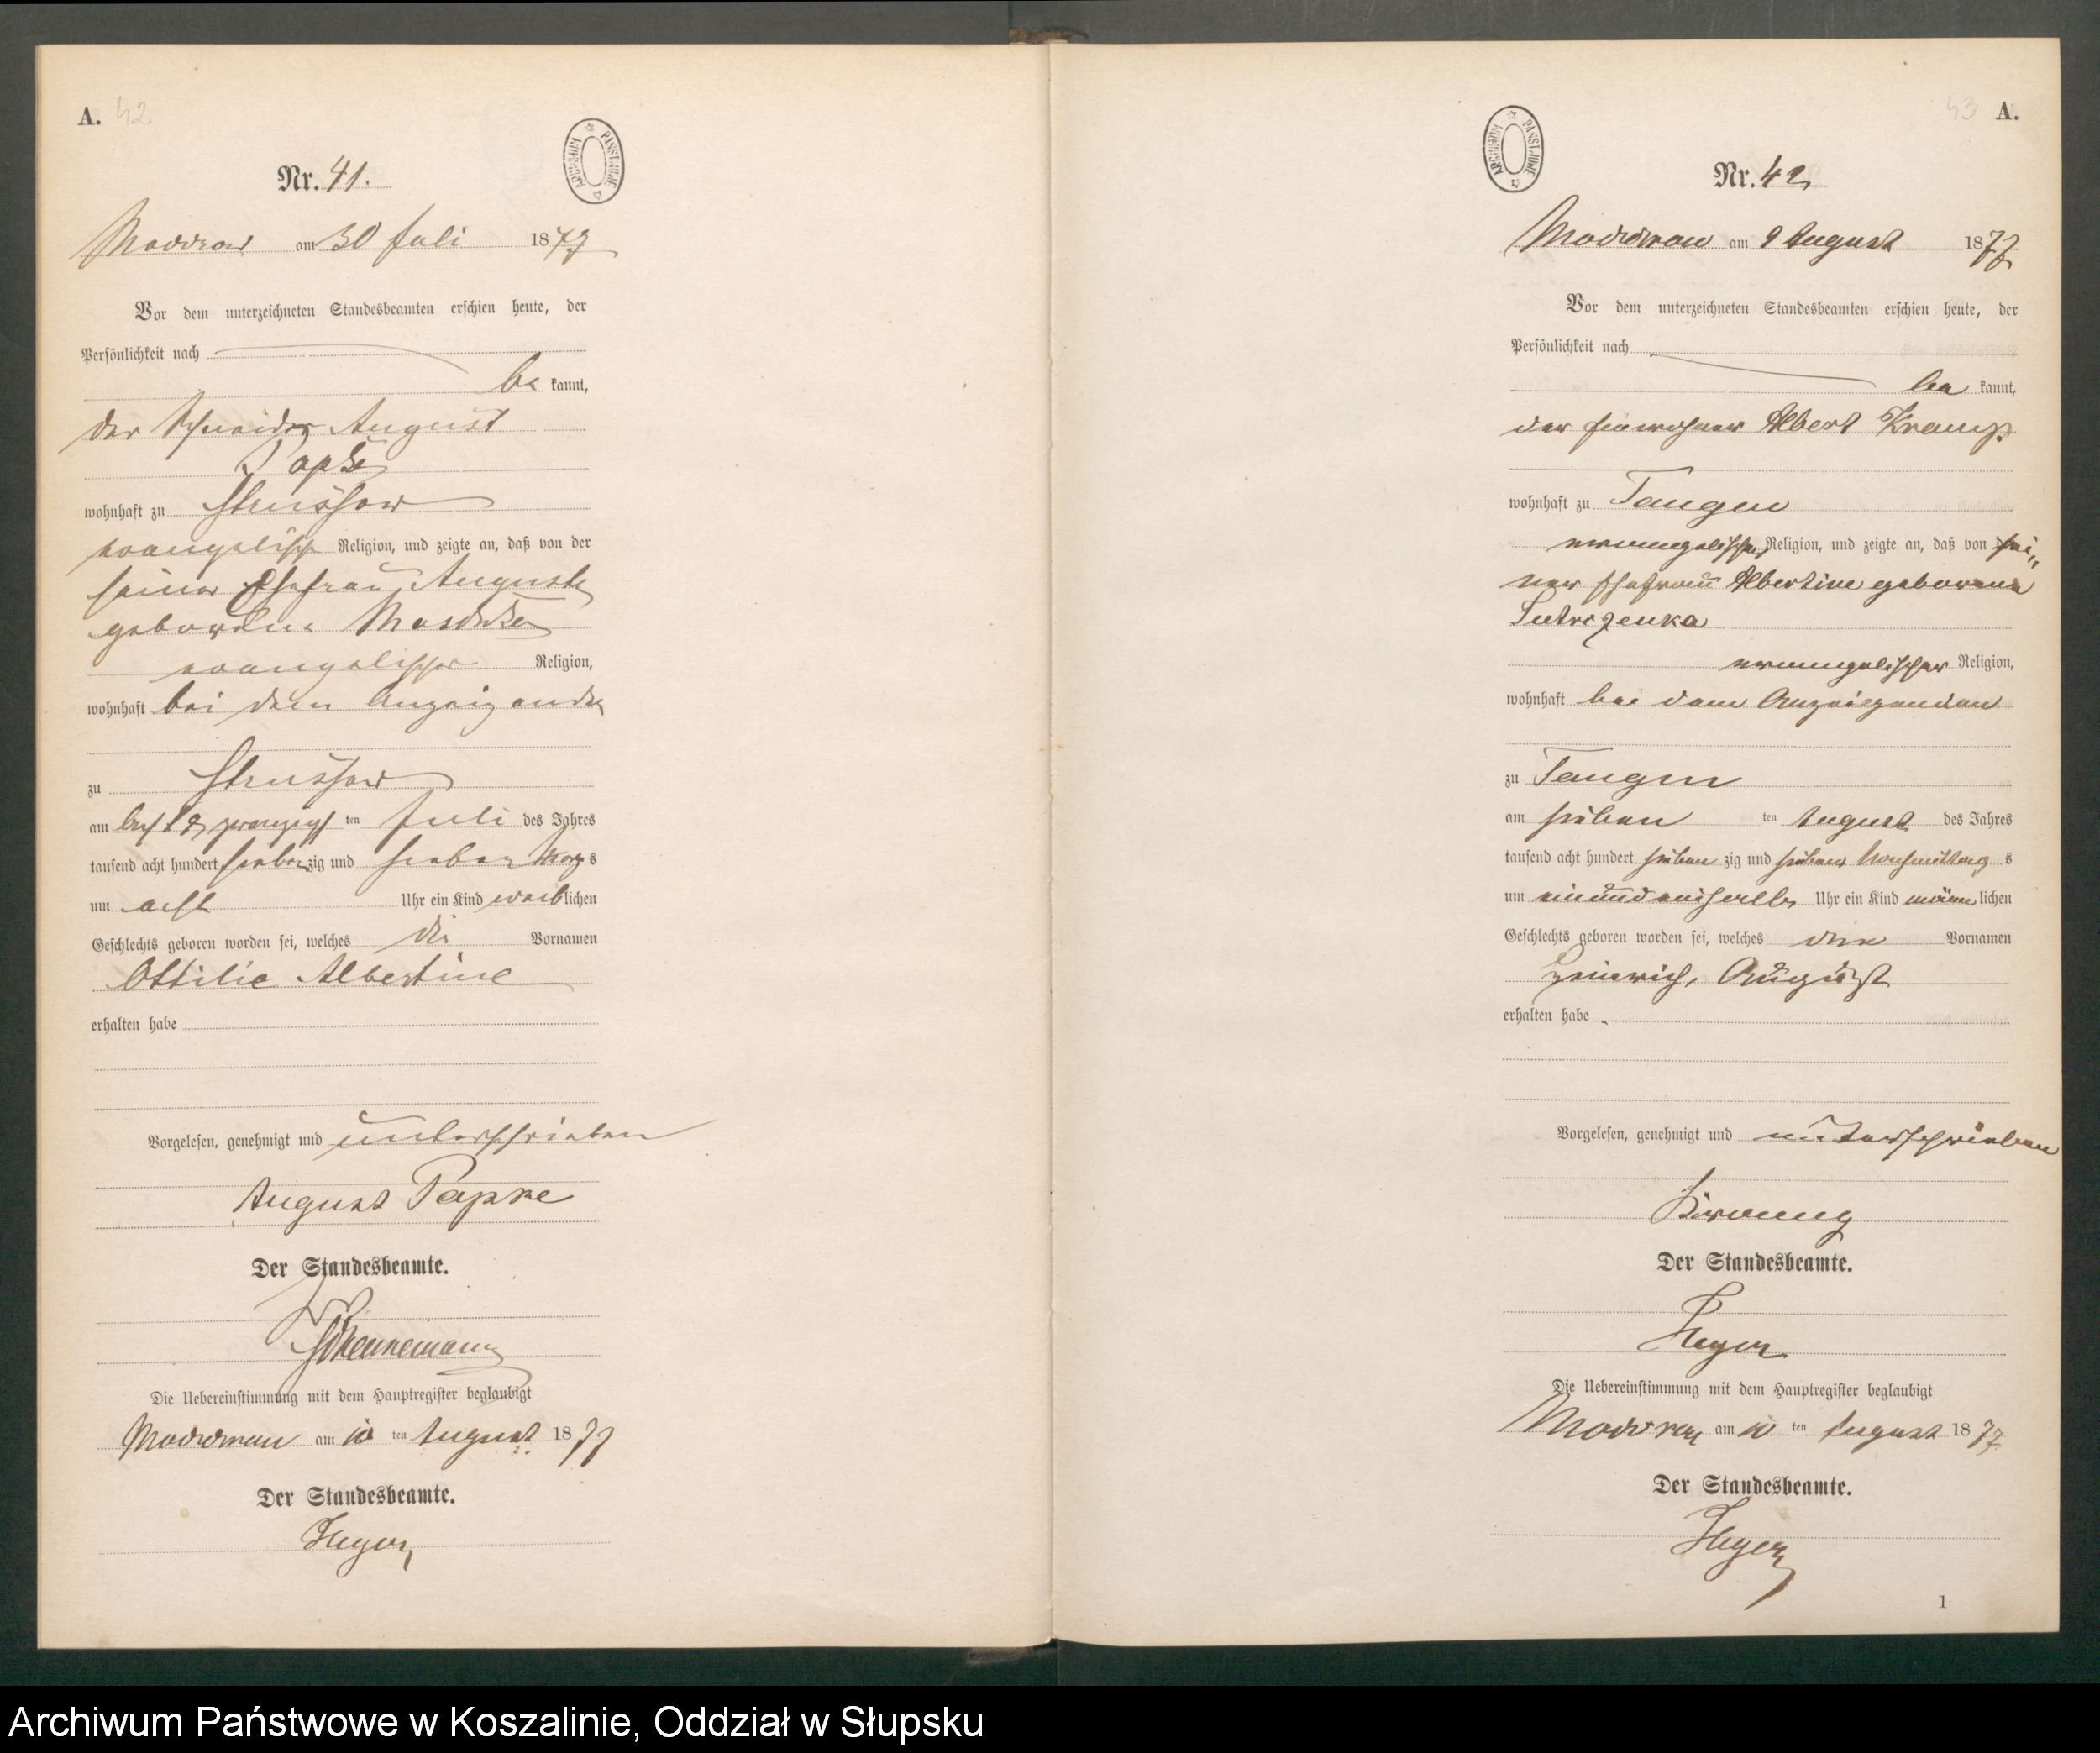 A. 42
Nr. 41.
ARCHIWUM PAŃSTWOWE
Moddrow am 30 Juli 1877
Vor dem unterzeichneten Standesbeamten erschien heute, der
Persönlichkeit nach
be kannt,
der Schneider August
Papke
wohnhaft zu Strussow
evangelisch Religion, und zeigte an, daß von der
seiner Ehefrau Auguste
geborene
evangelischer Religion,
wohnhaft bei dem Anzeigenden
zu Strussow
am acht & zwanzigsten ten Juli des Jahres
tausend acht hundert sieben zig und sieben Morgens
um acht Uhr ein Kind weiblichen
Geschlechts geboren worden sei, welches die Vornamen
Ottilie Albertine
erhalten habe
Vorgelesen, genehmigt und unterschrieben
August Papke
Der Standesbeamte.
Die Uebereinstimmung mit dem Hauptregister beglaubigt
Moddrow am 10 ten August 1877
Der Standesbeamte.
Heyer
43 A.
ARCHIWUM PAŃSTWOWE
Nr. 42
Moddrow am 9 August 1877
Vor dem unterzeichneten Standesbeamten erschien heute, der
Persönlichkeit nach
be kannt,
der Einwohner Albert Kramp
wohnhaft zu Tangen
evangelischer Religion, und zeigte an, daß von sei„
ner Ehefrau Albertine geborene
evangelischer Religion,
wohnhaft bei dem Anzeigenden
zu Tangen
am sieben ten August des Jahres
tausend acht hundert sieben zig und sieben Nachmittag s
um Uhr ein Kind männ lichen
Geschlechts geboren worden sei, welches den Vornamen
Heinrich, August
erhalten habe
Vorgelesen, genehmigt und unterschrieben
Der Standesbeamte.
Heyer
Die Uebereinstimmung mit dem Hauptregister beglaubigt
Moddrow am 10 ten August 1877
Der Standesbeamte.
Heyer
1
Archiwum Państwowe w Koszalinie, Oddział w Słupsku